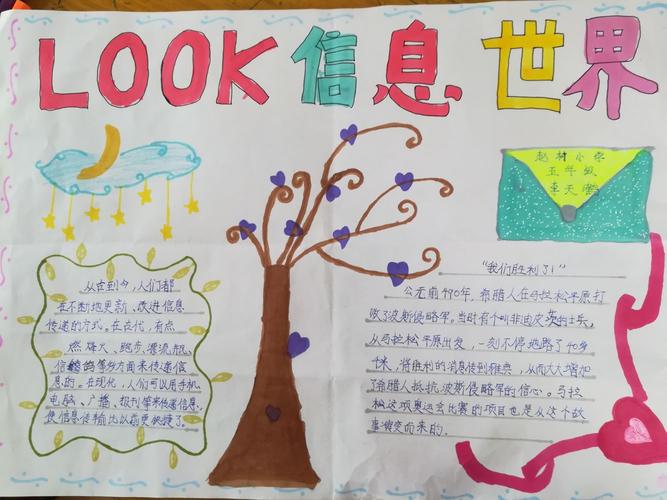 LOOK信息世界
赵村小学
五年级
李天
从古到今，人们都
在不断地更新、改进信息
传递的方式。在古代，有点
燃烽火、跑步、漂流瓶、
信鸽等多方面来传递信
息的。在现代，人们可以用手机、
电脑、广播、报刊等来传递信息，
使信息传输比以前更快捷了。
“我们胜利了！”
公元前490年，希腊人在马拉松平原打
败了波斯侵略军。当时有个叫菲迪皮茨的士兵，
从马拉松平原出发，一刻不停地跑了40多
千米，将胜利的消息传到雅典，从而大大增加
了希腊人抵抗波斯侵略军的信心。马拉
松这项奥运会比赛的项目也是从这个故
事演变而来的。